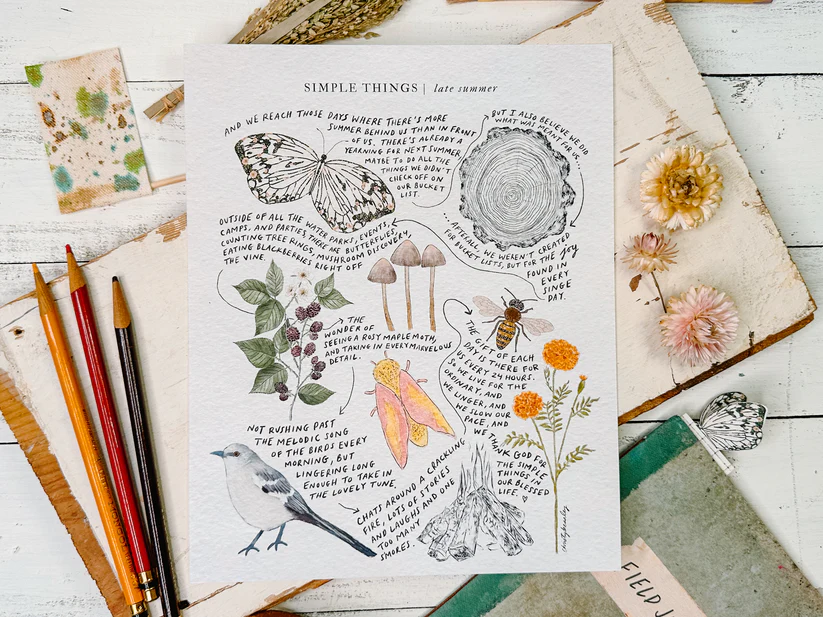 SIMPLE THINGS | late summer
AND WE REACH THOSE DAYS WHERE THERE'S MORE
SUMMER BEHIND US THAN IN FRONT
OF US. THERE'S ALREADY A
YEARNING FOR NEXT SUMMER
MAYBE TO DO ALL THE
THINGS WE DIDN'T
CHECK OFF ON
OUR BUCKET
LIST.
BUT I ALSO BELIEVE WE DID
WHAT WAS MEANT FOR US...
...AFTERALL, WE WEREN'T CREATED
FOR BUCKET LISTS, BUT FOR THE joy
FOUND IN
EVERY
SINGE
DAY.
OUTSIDE OF ALL THE WATER PARKS, EVENTS,
CAMPS, AND PARTIES, THERE ARE BUTTERFLIES,
COUNTING TREE RINGS, MUSHROOM DISCOVERY,
EATING BLACKBERRIES RIGHT OFF
THE VINE.
THE
WONDER OF
SEEING A ROSY MAPLE MOTH,
AND TAKING IN EVERY MARVELOUS
DETAIL.
NOT RUSHING PAST
THE MELODIC SONG
OF THE BIRDS EVERY
MORNING, BUT
LINGERING LONG
ENOUGH TO TAKE IN
THE LOVELY TUNE.
CHATS AROUND A CRACKLING
FIRE, LOTS OF STORIES
AND LAUGHS AND ONE
TOO MANY
SMORES.
THE GIFT OF EACH
DAY IS THERE FOR
US EVERY 24 HOURS.
SO WE LIVE FOR THE
ORDINARY, AND
WE LINGER, AND
WE SLOW OUR
PACE, AND
WE THANK GOD FOR
THE SIMPLE
THINGS IN
OUR BLESSED
LIFE.
FIELD J